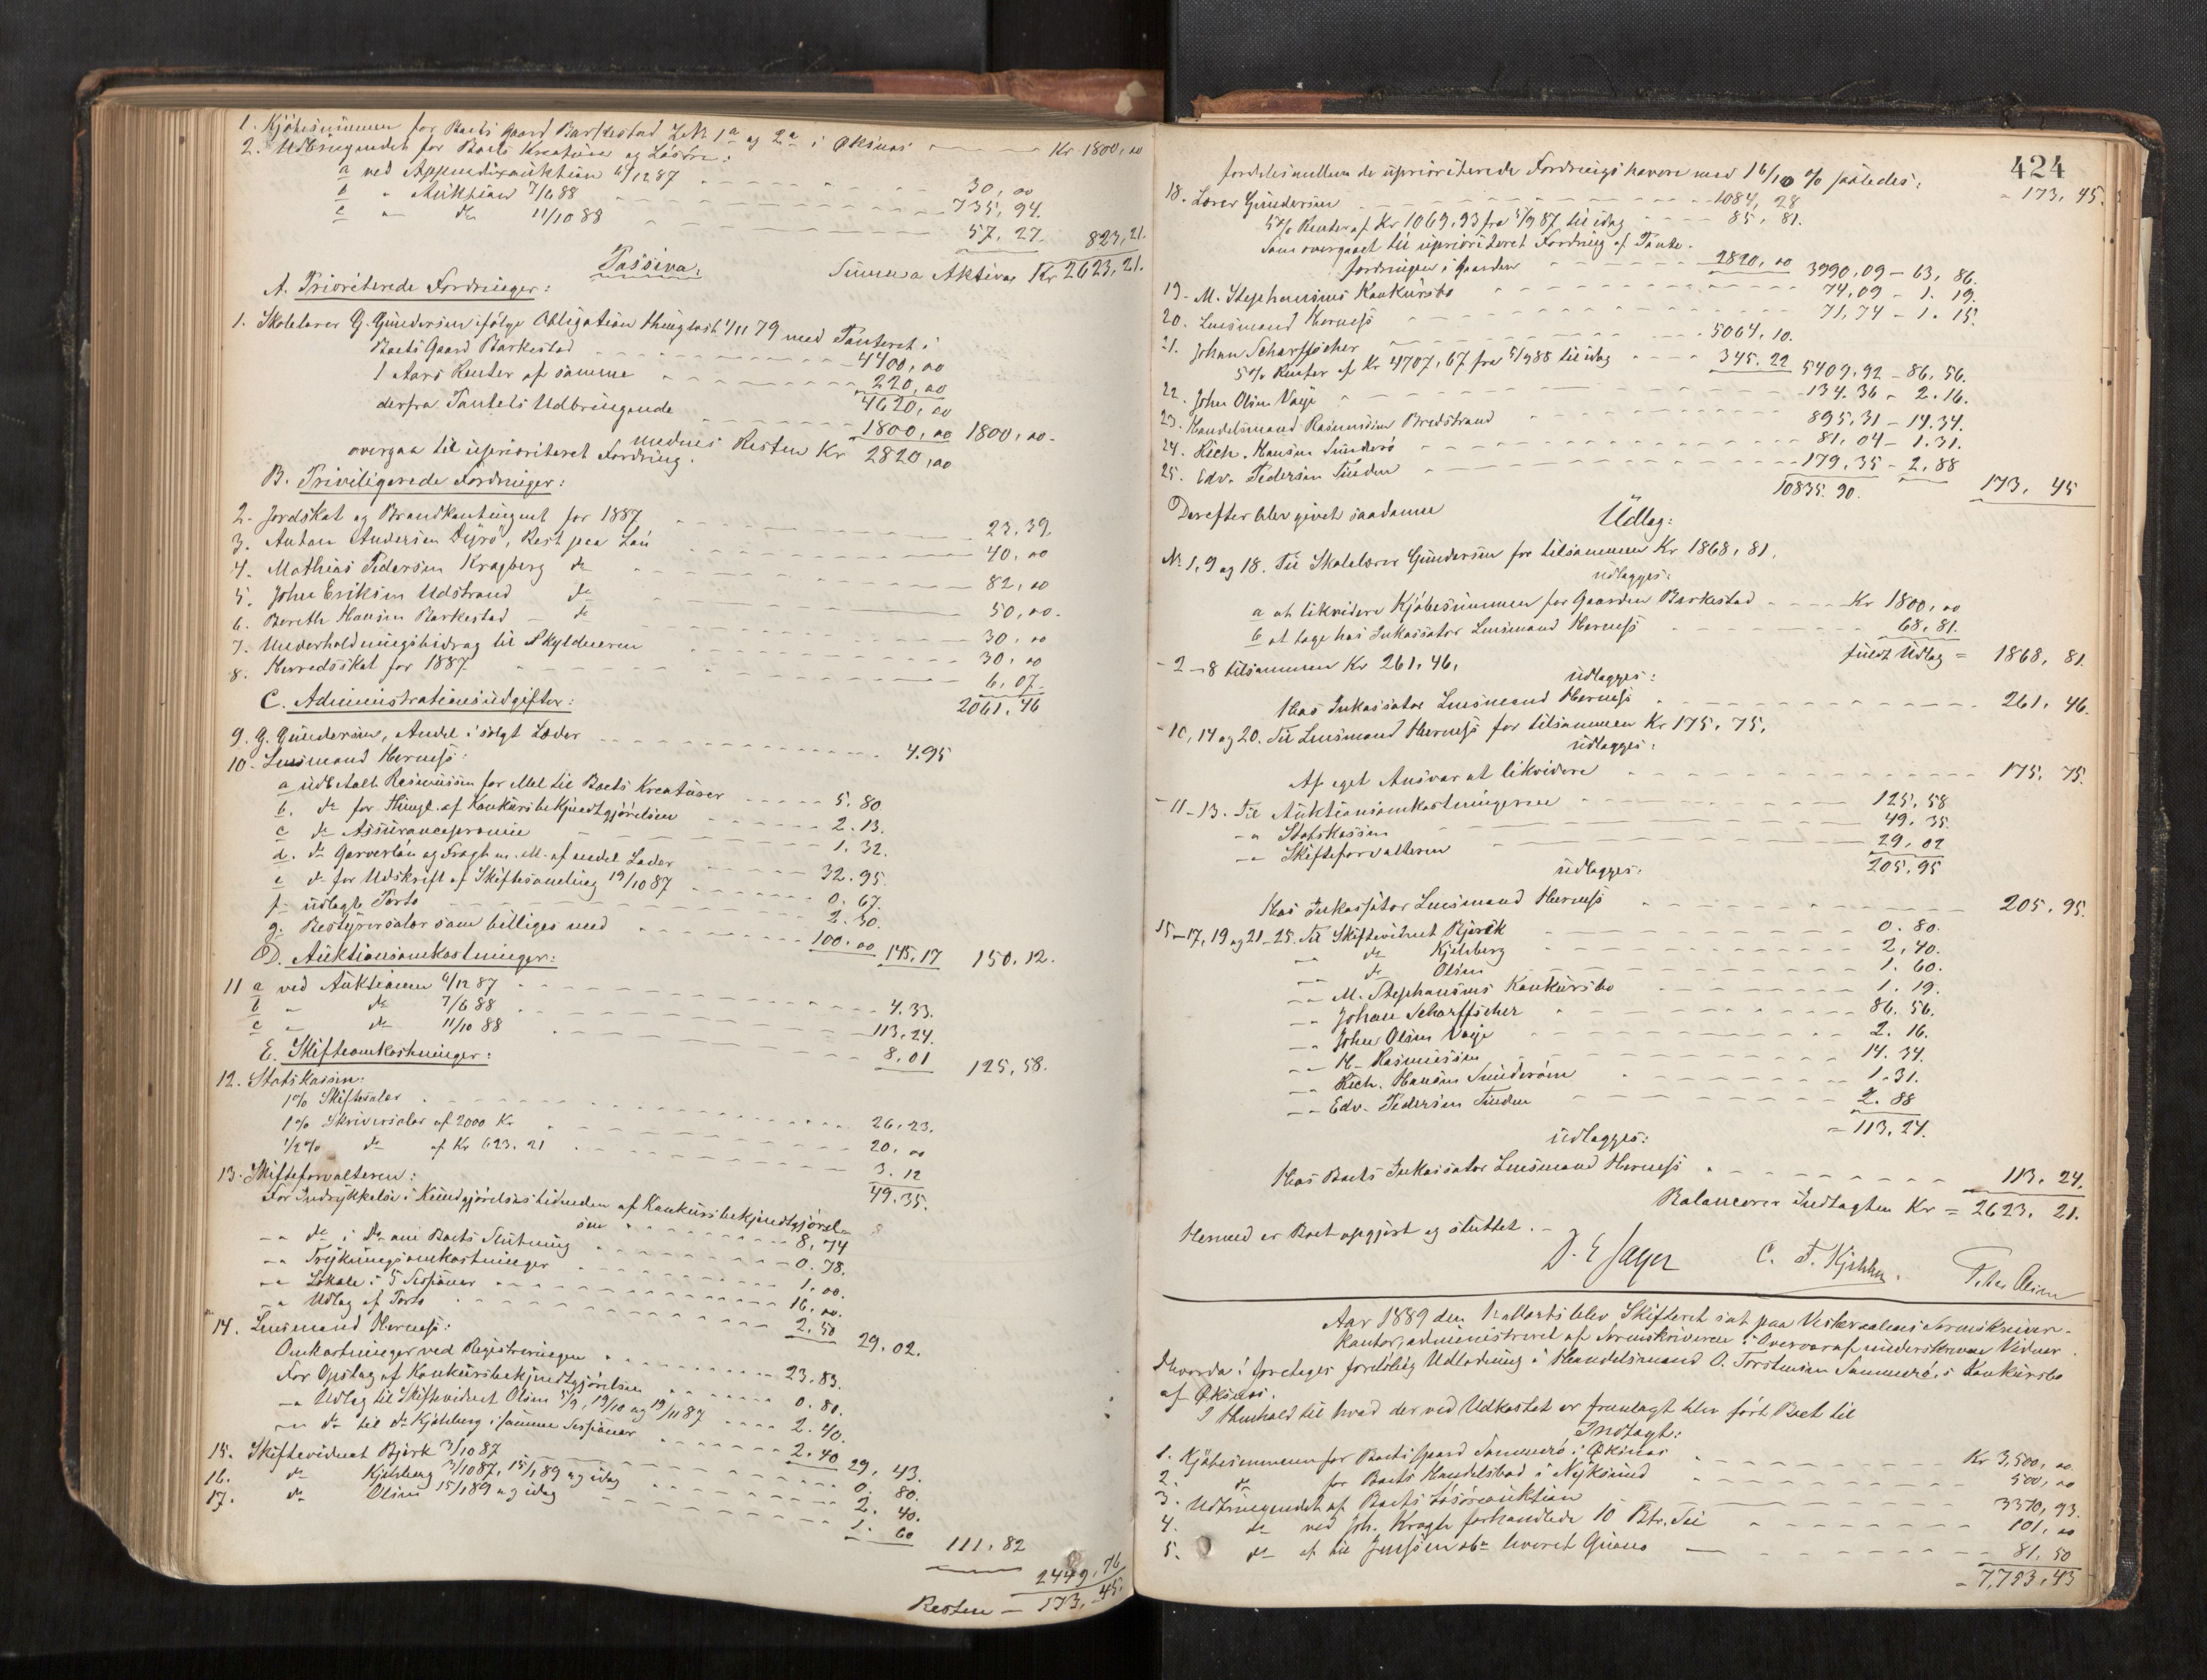 1. Kjöbesummen for Boets Gaard Barkestad L.Nr. 1a og 2a i Öksnes Kr 1800,00
2. Udbringendet for Boets Kreaturer og Lösöre:
a ved Appendixauktion 6/12 87 30,00
b " Auktion 7/6 88 735,94.
c " do 11/10 88 57,27. 823,21.
Summa Aktiva Kr 2623,21.
Passiva:
A. Prioriterede Fordringer:
1. Skolelærer G. Gundersen ifölge Obligation thinglæst 4/11 79 med Panteret i
Boets Gaard Barkestad 4400,00
1 Aars Renter af samme 220,00
4620,00
derfra Pantets Udbringende 1800,00 1800,00.
medens Resten Kr 2820,00
overgaa til uprioriteret Fordring.
B. Priviligerede Fordringer:
2. Jordskat og Brandkontingent for 1887 23,39.
3. Anton Andersen Dyrö, Rest paa Lön 40,00
4. Mathias Pedersen Kragberg do 82,00
5. John Eriksen Udstrand do 50,00.
6. Bereth Hansen Barkestad do 30,00
7. Underholdningsbidrag til Skyldneren 30,00
8. Herredsskat for 1887 6,07.
2061,46
C. Administrationsudgifter:
9. G. Gundersen, Andel i solgt Læder 4.95
10. Lensmand Herness:
a udbetalt Rasmussen for Mel til Boets Kreaturer 5.80
b. do for Thingl. af Konkursbekjendtgjörelsen 2.13.
c do Assurancepræmie 1.32.
d. do Garverlön og Fragt m.M. af andel Læder 32.95.
e do for Udskrift af Skiftesamling 19/10 87 0.67.
f. udlagt Porto 2.30.
g. Bestyrersalær som billiges med 100.00 145,17 150.12.
D. Auktionsomkostninger:
11 a ved Auktionen 6/12 87 4.33.
b " do 7/6 88 113,24.
c " do 11/10 88 8,01 125,58.
E. Skifteomkostninger:
12. Statskassen:
1% Skiftesalær 26,23.
1% Skriversalær af 2000 Kr 20,00
1/2% do af Kr 623.21 3.12
49.35.
13. Skifteforvalteren:
For Indrykkelse i Kundgjörelsestidenden af Konkursbekjendtgjörel-
sen 8,74
" do i do om Boets Slutning 0.78.
" Trykningsomkostninger 1,00.
" Lokale i 5 Sessioner 16,00.
" Udlæg af Porto 2.50 29,02.
14. Lensmand Herness:
Omkostninger ved Registreringen 23.83.
For Opslag af Konkursbekjendtgjörelsen 0.80.
" Udlæg til Skiftevidnet Olsen 5/9, 19/10 og 19/11 87 2.40.
" do til do Kjehlberg i samme Sessioner 2.40 29,43.
15. Skiftevidnet Björk 3/10 87 0.80.
16. do Kjehlberg 3/10 87, 15/1 89 og idag 2.40.
17. do Olsen 15/1 89 og idag 1.60 111,82
2449,76
Resten – 173,45.
424
fordeles mellem de uprioriterede Fordringshavere med 1 6/10 % saaledes: " 173,45.
18. Lærer Gundersen 1084,28
5% Renter af Kr 1069,93 fra 5/9 87 til idag 85,81.
Som overgaaet til uprioriteret Fordring af Pante-
fordringen i Gaarden 2820,00 3990,09 – 63,86.
19. M. Stephansens Konkursbo 74,09 – 1.19.
20. Lensmand Herness 71,74 – 1.15.
21. Johan Scharffscher 5064,10.
5% Renter af Kr 4707,67 fra 5/9 88 til idag 345.22 5409,92 – 86,56.
22. John Olsen Vaje 134.36 – 2.16.
23. Handelsmand Rasmussen Bredstrand 895,31 – 14.34.
24. Rich. Hansen Sunderö 81,04 – 1.31.
25. Edv. Pedersen Tinden 179,35 – 2,88
10835.90. 173,45
Derefter blev givet saadanne
Udlæg:
No 1, 9 og 18. Til Skolelærer Gundersen for tilsammen Kr 1868,81.
udlægges:
a at likvidere Kjöbesummen for Gaarden Barkestad Kr 1800,00
b at tage hos Inkassator Lensmand Herness 68,81.
fuldt Udlæg = 1868,81.
" 2–8 tilsammen Kr 261,46,
udlægges:
Hos Inkassator Lensmand Herness 261,46.
" 10, 14 og 20. Til Lensmand Herness for tilsammen Kr 175,75,
udlægges:
Af eget Ansvar at likvidere 175,75.
" 11–13. Til Auktionsomkostningerne 125,58
" Statskassen 49.35.
" Skifteforvalteren 29,02
205,95
udlægges:
Hos Inkassator Lensmand Herness 205,95.
15–17, 19 og 21–25. Til Skiftevidnet Björk 0.80.
" do Kjehlberg 2,40.
" do Olsen 1.60.
" M. Stephansens Konkursbo 1.19.
" Johan Scharffscher 86.56.
" John Olsen Vaje 2.16.
" H. Rasmussen 14.34.
" Rich. Hansen Sunderöen 1.31.
" Edv. Pedersen Tinden 2.88
= 113,24.
udlægges:
Hos Boets Inkassator Lensmand Herness 113,24.
Balancerer Indtægten Kr = 2623,21.
Hermed er Boet opgjort og sluttet.
C. F. Kjehlb. Peder Olsen
Aar 1889 den blev Skifteret sat paa Vesteraalens Sorenskriver-
kontor, administreret af Sorenskriveren i Overvær af underskrevne Vidner.
Hvorda! foretoges foreløbig Udlodning i Handelsmand O. Torstensen Sommerö's Konkursbo
af Öksnes.
I Henhold til hvad der ved Udkastet er fremlagt blev fört Boet til
Indtægt:
1. Kjöbesummen for Boets Gaard Sommerö i Öksnes Kr 3,500,00
2. do for Boets Handelsbod i Nyksund 500,00
3. Udbringendet af Boets Lösöreauktion 3370,93.
4. do ved Joh. Kragh forhandlede 10 Btr. Sei 101,00
5. do af til Jensen & Co leveret Guano 81.50
= 7,753,43